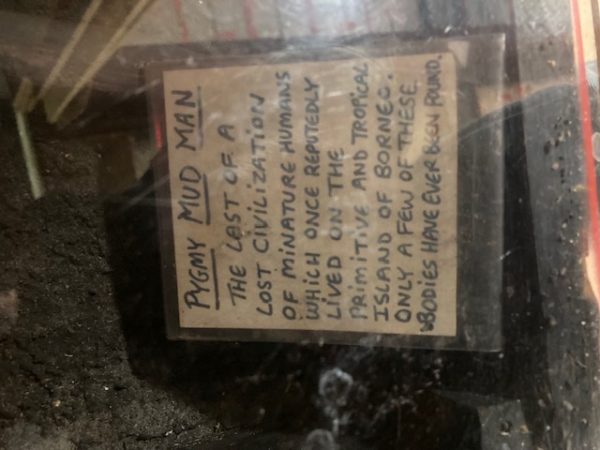 PYGMY MUD MAN
THE LAST OF A
LOST CIVILIZATION
OF MINATURE HUMANS
WHICH ONCE REPUTEDLY
LIVED ON THE
PRIMITIVE AND TROPICAL
ISLAND OF BORNEO.
ONLY A FEW OF THESE
BODIES HAVE EVER BEEN FOUND.